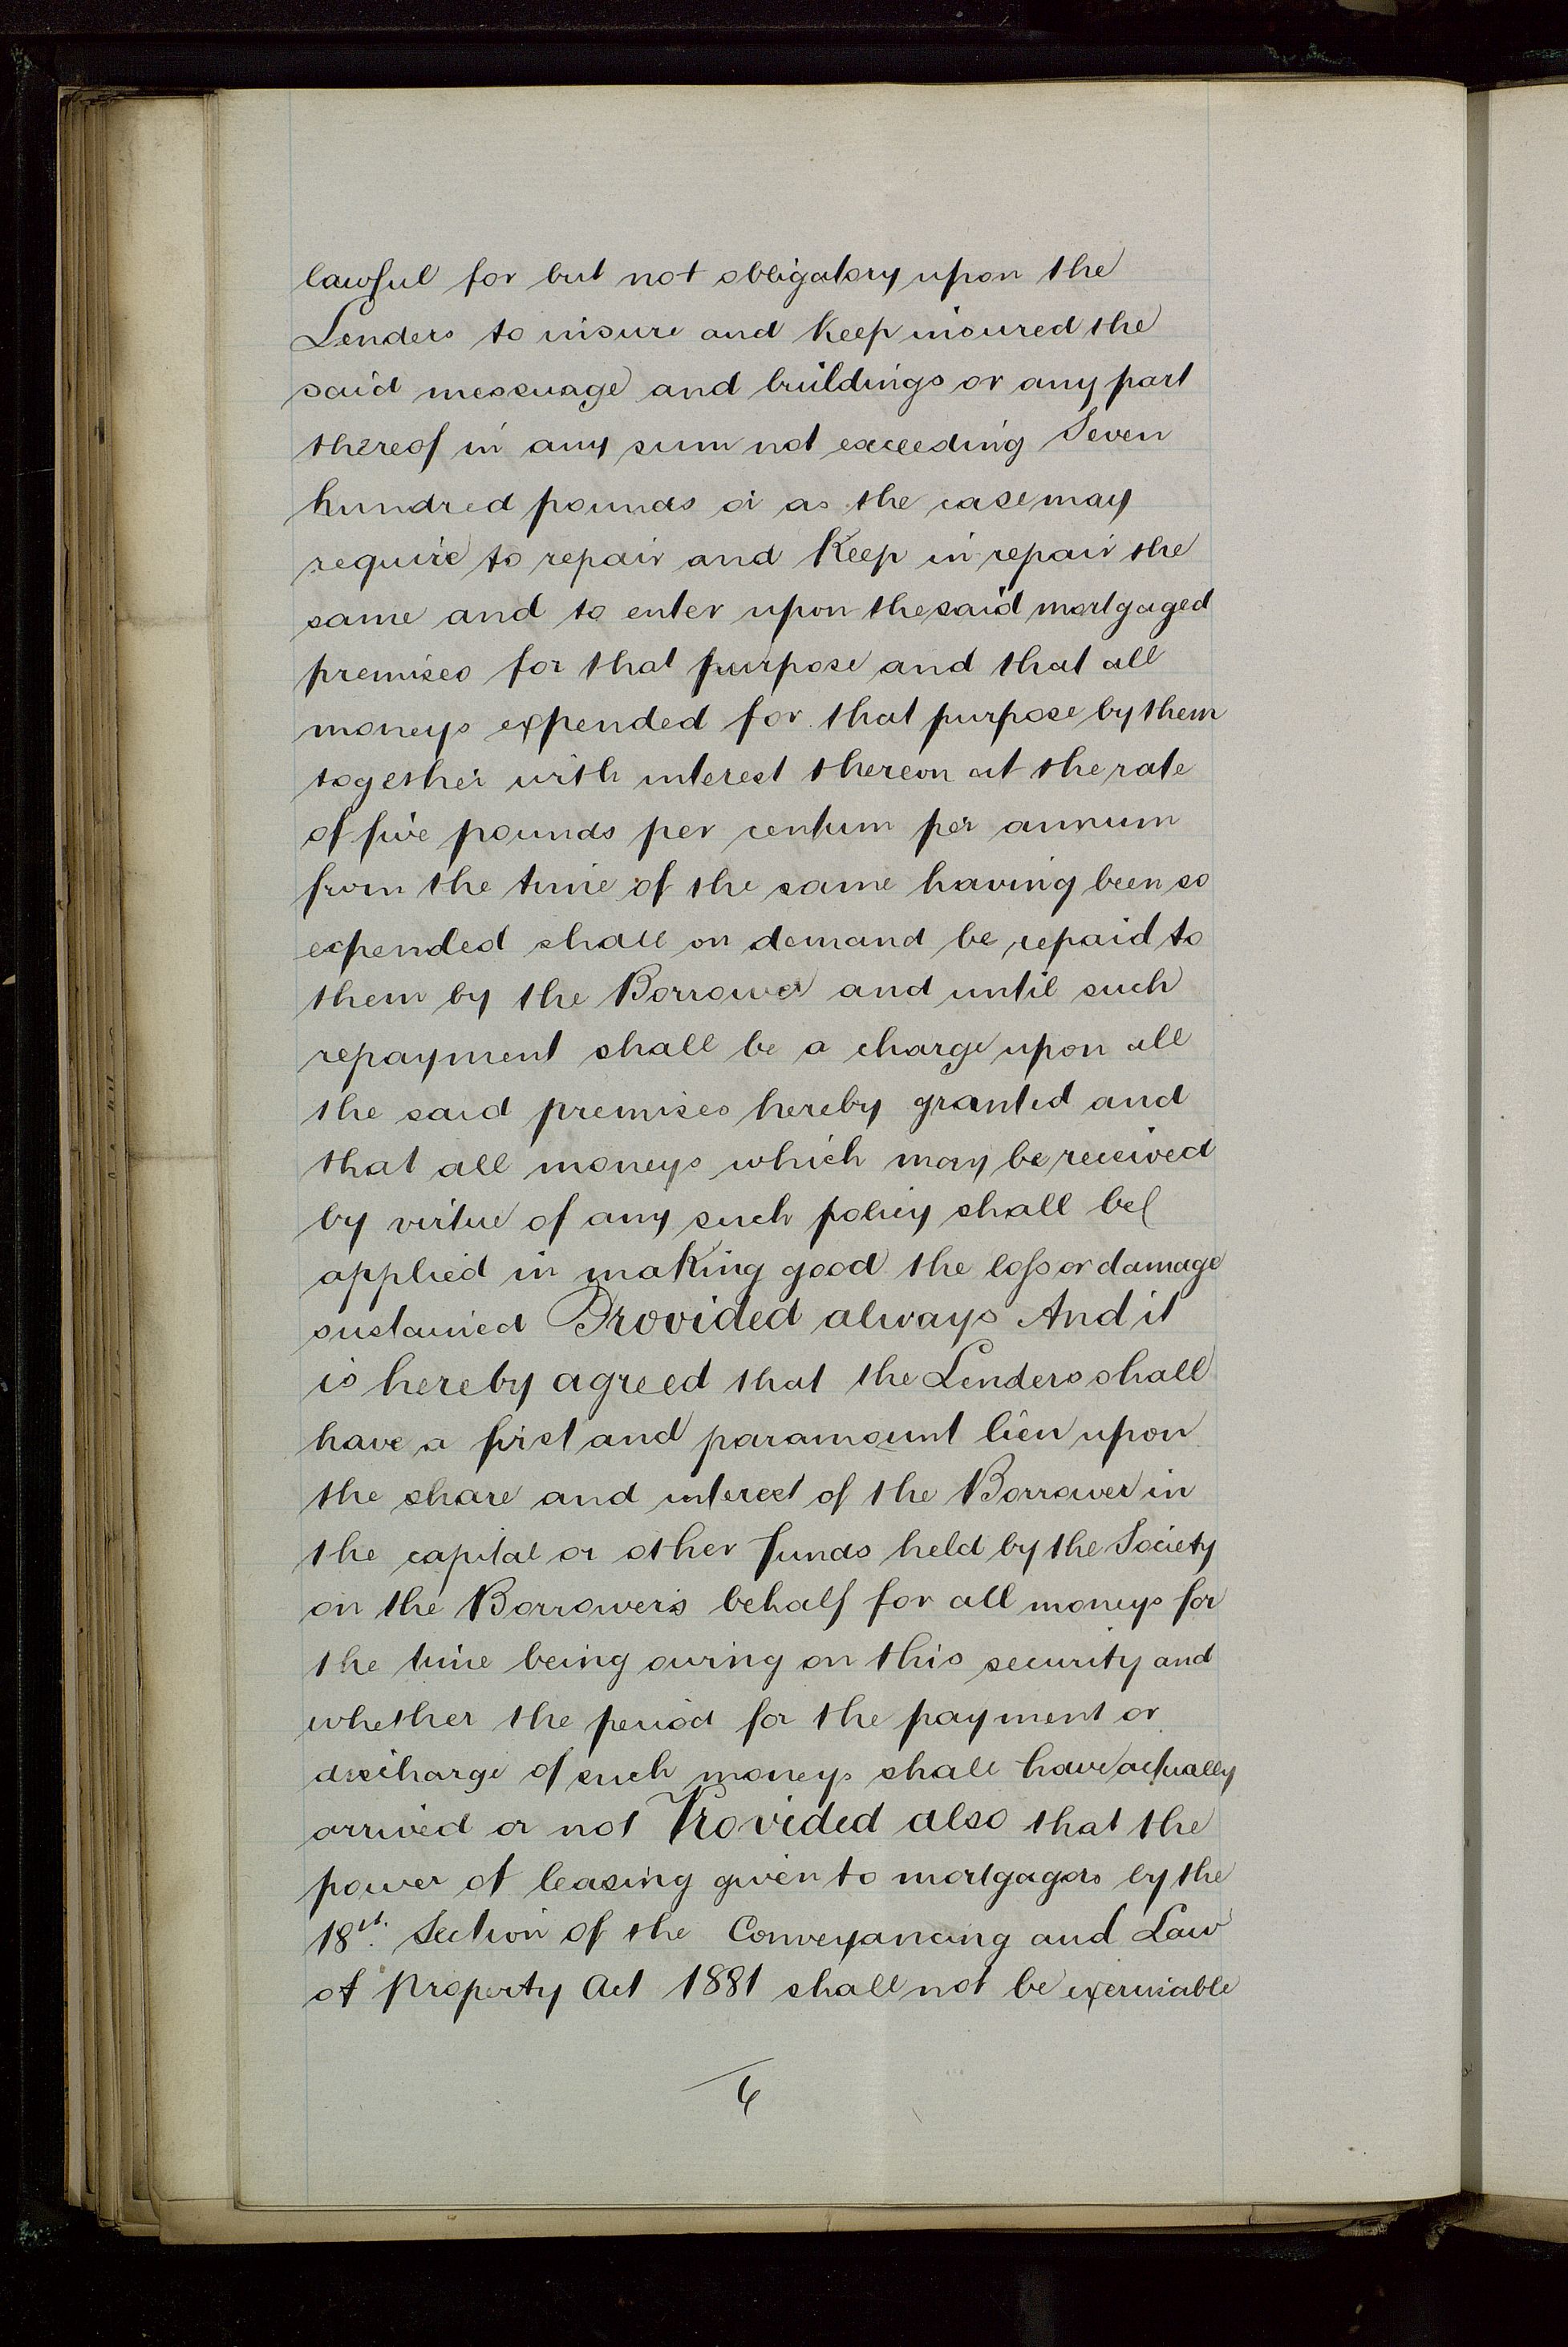 lawful for but not obligatory upon the
Lenders to insure and keep insured the
said messuage and buildings or any part
thereof in any sum not exceeding Seven
hundred pounds or as the case may
require to repair and Keep in repair the
same and to enter upon the said mortgaged
premises for that purpose and that all
moneys expended for that purpose by them
together with interest thereon at the rate
of five pounds per centum per annum
from the time of the same having been so
expended shall on demand be repaid to
them by the Borrower and until such
repayment shall be a charge upon all
the said premises hereby granted and
that all moneys which may be received
by virtue of any such policy shall be
applied in making good the loss or damage
sustained Provided always And it
is hereby agreed that the Lenders shall
have a first and paramount lien upon
the share and interest of the Borrower in
the capital or other funds held by the Society
on the Borrower's behalf for all moneys for
the time being owing on this security and
whether the period for the payment or
discharge of such moneys shall have actually
arrived or not Provided also that the
power of leasing given to mortgagors by the
18st. Section of the Conveyancing and Law
of Property Act 1881 shall not be exercisable